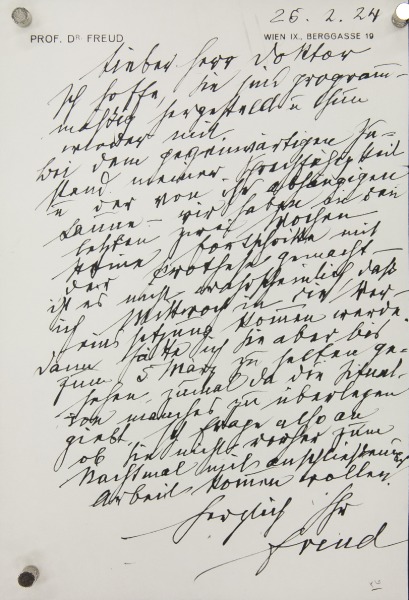 25. 2. 24
PROF. DR. FREUD
WIEN IX., BERGGASSE 19
Lieber Herr Doktor
Ich hoffe, Sie sind programm-
mäßig hergestellt u thun
wieder mit.
Bei dem gegenwärtigen Zu-
stand meiner Sprechfähigkeit
u der von ihr abhängigen
Laune – wir haben in den
letzten zwei Wochen
keine Fortschritte mit
der Prothese gemacht –
ist es nicht wahrscheinlich daß
ich Mittwoch in die Ver-
einssitzung kommen werde.
Dann hätte ich Sie aber bis
zum 5 März zu selten ge-
sehen, zumal da die Situat-
ion manches zu überlegen
giebt. Ich frage also an
ob Sie nicht vorher zum
Nachtmal mit anschließender
Arbeit kommen wollen.
Herzlich Ihr
Freud